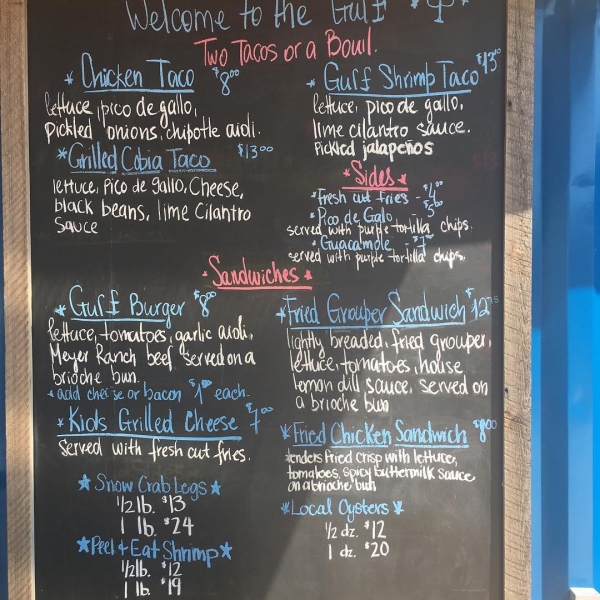 Welcome to the Gulf
Two Tacos or a Bowl.
* Chicken Taco $8⁰⁰
lettuce, pico de gallo,
pickled onions, chipotle aioli.
* Grilled Cobia Taco $13⁰⁰
lettuce, Pico de gallo, Cheese,
black beans, lime Cilantro
Sauce
* Gulf Shrimp Taco $13⁰⁰
lettuce, pico de gallo,
lime cilantro sauce.
Pickled jalapeños
* Sides *
* Fresh cut fries - $4⁰⁰
* Pico de Galo $5⁰⁰
served with purple tortilla chips.
* Guacamole - $7
served with purple tortilla chips.
* Sandwiches *
* Gulf Burger $8⁰⁰
lettuce, tomatoes, garlic aioli,
Meyer Ranch beef served on a
brioche bun.
* add cheese or bacon $1⁰⁰ each.
* Kids Grilled Cheese $7⁰⁰
Served with fresh cut fries.
* Snow Crab Legs *
1/2 lb. $13
1 lb. $24
* Peel & Eat Shrimp *
1/2 lb. $12
1 lb. $19
* Fried Grouper Sandwich $12
lightly breaded, fried grouper,
lettuce, tomatoes, house
lemon dill sauce, served on
a brioche bun
* Fried Chicken Sandwich $8⁰⁰
tenders fried crisp with lettuce,
tomatoes, spicy buttermilk sauce
on a brioche bun
* Local Oysters *
1/2 dz. $12
1 dz. $20